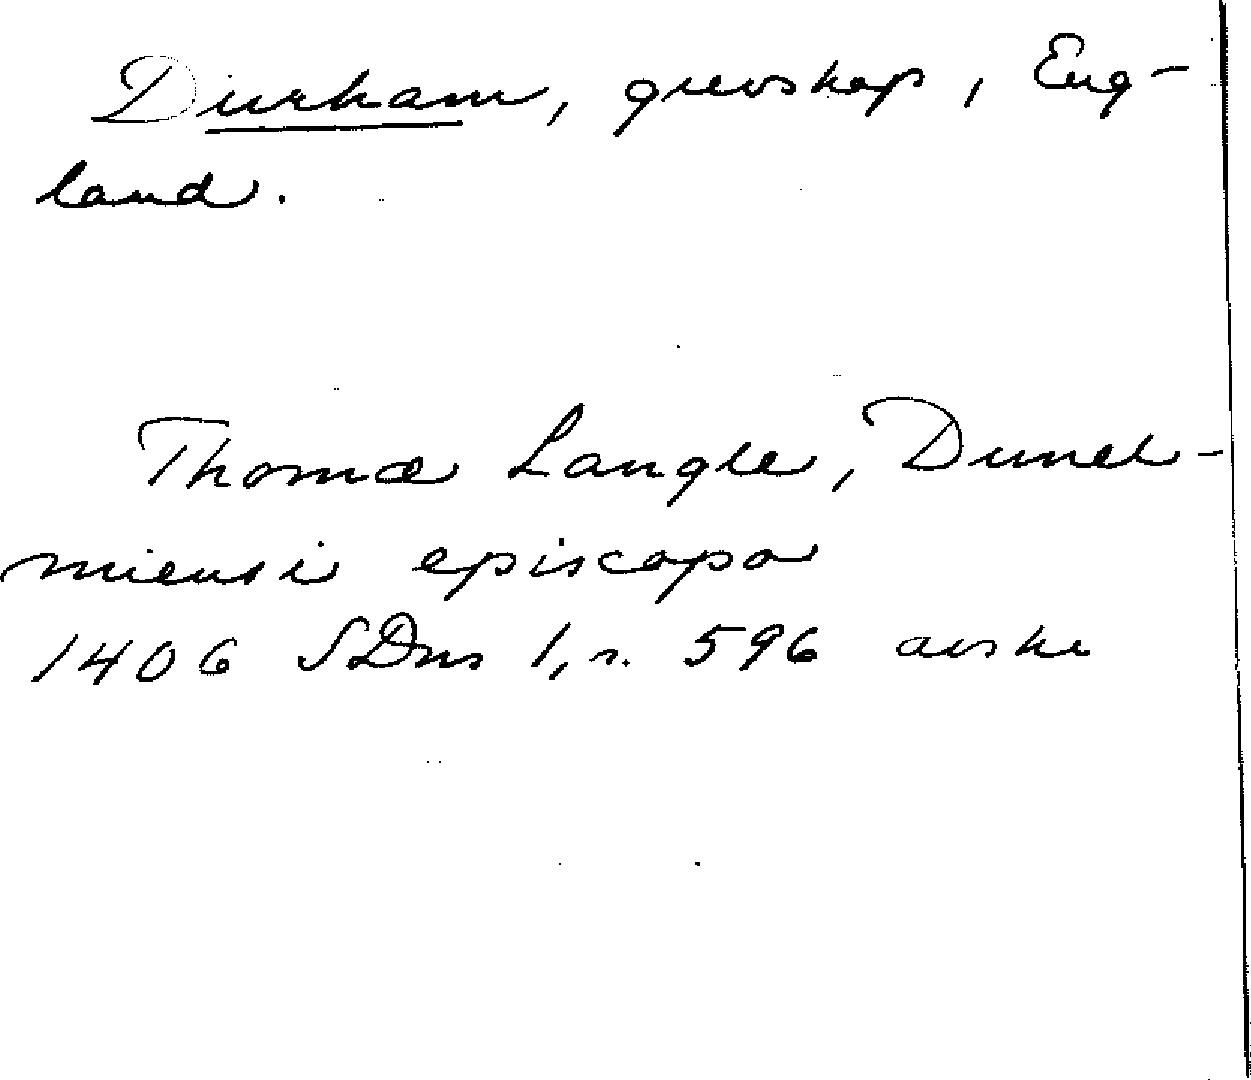 Durham, grevskap, Eng-
land.
Thoma Langle, Dunel-
miensi episcopo
1406 SDns 1, s. 596 avskr